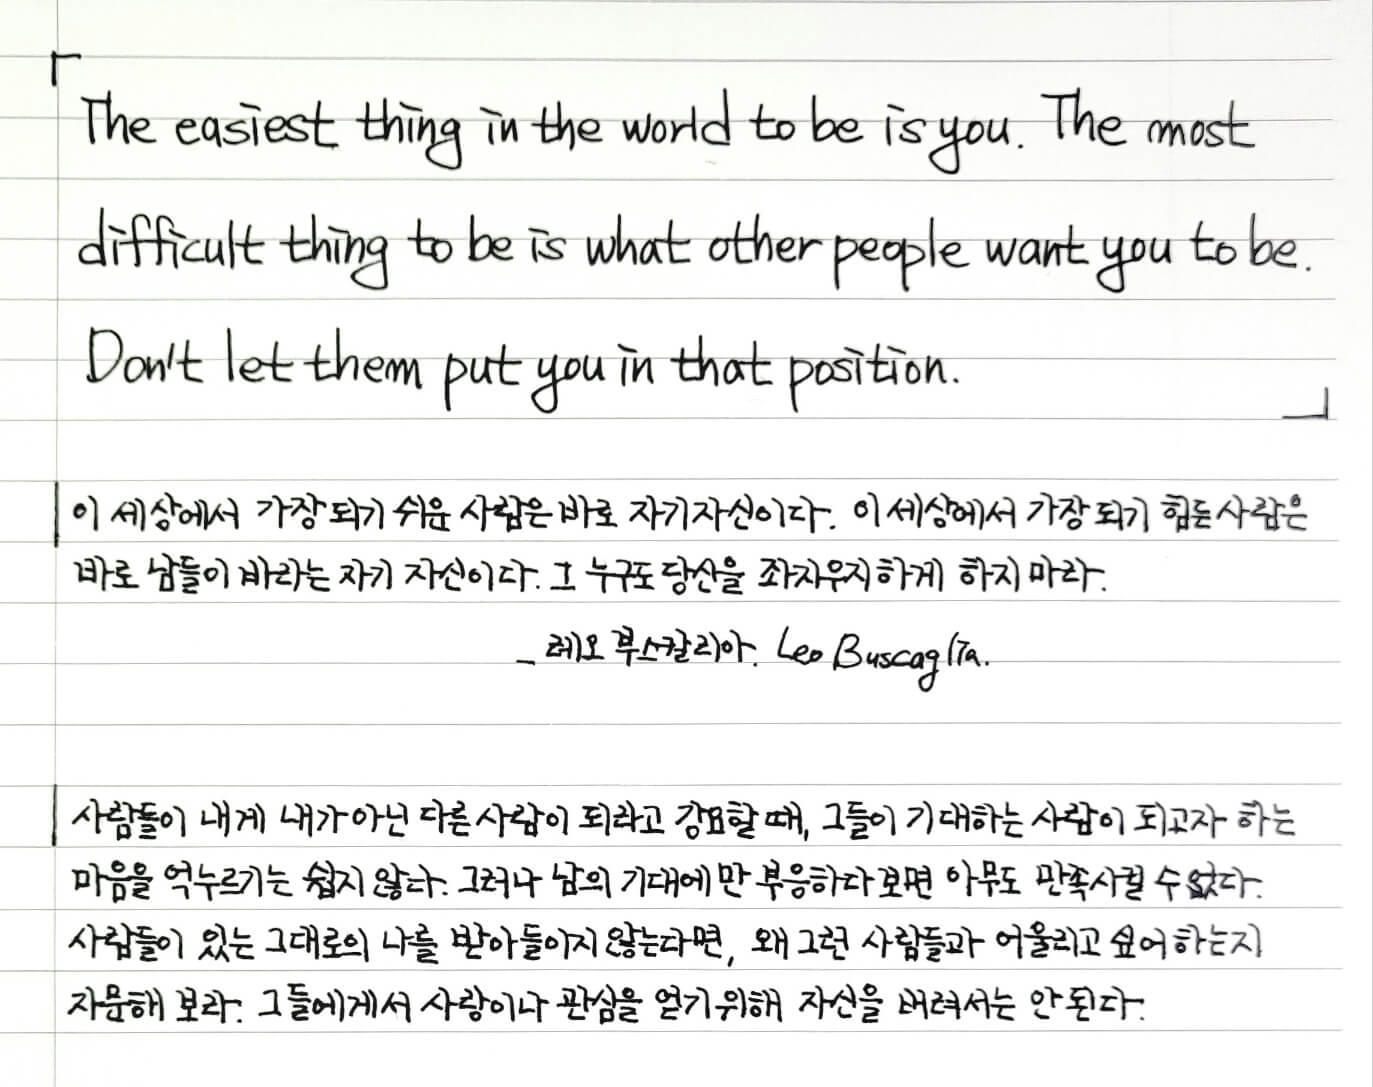 「The easiest thing in the world to be is you. The most
difficult thing to be is what other people want you to be.
Don't let them put you in that position.」
이 세상에서 가장 되기 쉬운 사람은 바로 자기자신이다. 이 세상에서 가장 되기 힘든 사람은
바로 남들이 바라는 자기 자신이다. 그 누구도 당신을 좌지우지하게 하지 마라.
_ 레오 부스칼리아. Leo Buscaglia.
사람들이 내게 내가 아닌 다른 사람이 되라고 강요할 때, 그들이 기대하는 사람이 되고자 하는
마음을 억누르기는 쉽지 않다. 그러나 남의 기대에만 부응하다 보면 아무도 만족시킬 수 없다.
사람들이 있는 그대로의 나를 받아들이지 않는다면, 왜 그런 사람들과 어울리고 싶어 하는지
자문해 보라. 그들에게서 사랑이나 관심을 얻기 위해 자신을 버려서는 안 된다.